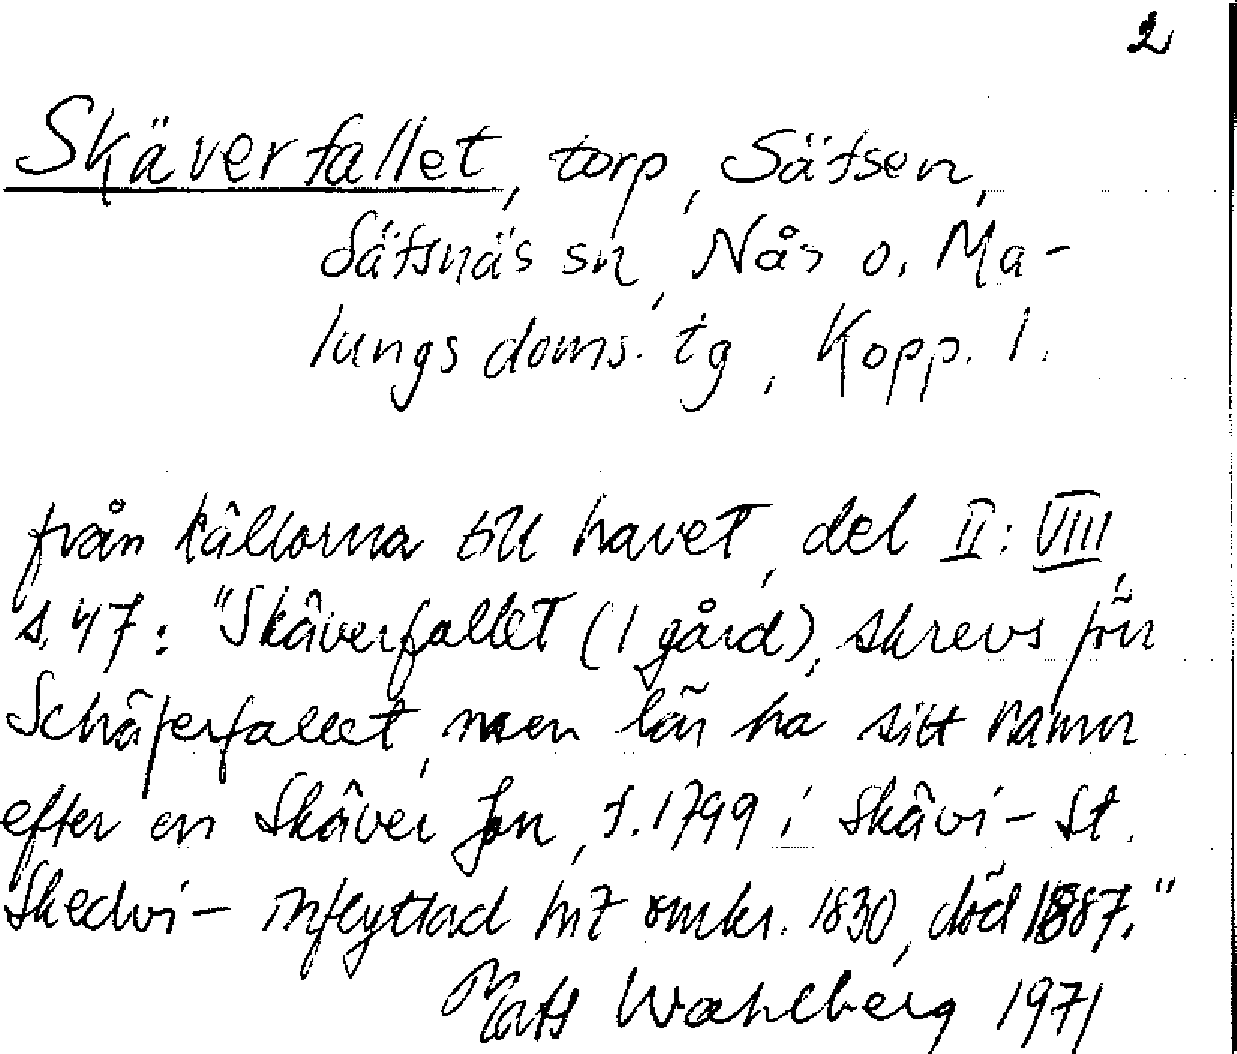 2
Skäverfallet, torp, Säfsen,
Säfsnäs sn, Nås o. Ma-
lungs doms. tg, Kopp. l.
från källorna till havet, del II: VIII,
s. 47: "Skäverfallet (1 gård), skrevs förr
Schäferfallet, men lär ha sitt namn
efter en Skäver Jon, f. 1799 i Skävi - St.
Skedvi - inflyttad hit omkr. 1830, död 1887."
Mats Wahlberg 1971